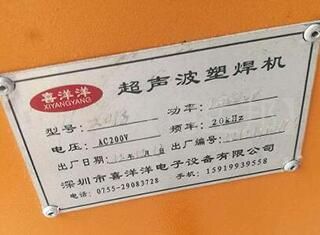 喜洋洋
XIYANGYANG
超声波塑焊机
型号:
功率:
电压: AC200V
频率: 20kHz
出厂日期:
出厂编号:
深圳市喜洋洋电子设备有限公司
电话: 0755-29083728 手机: 15919939558